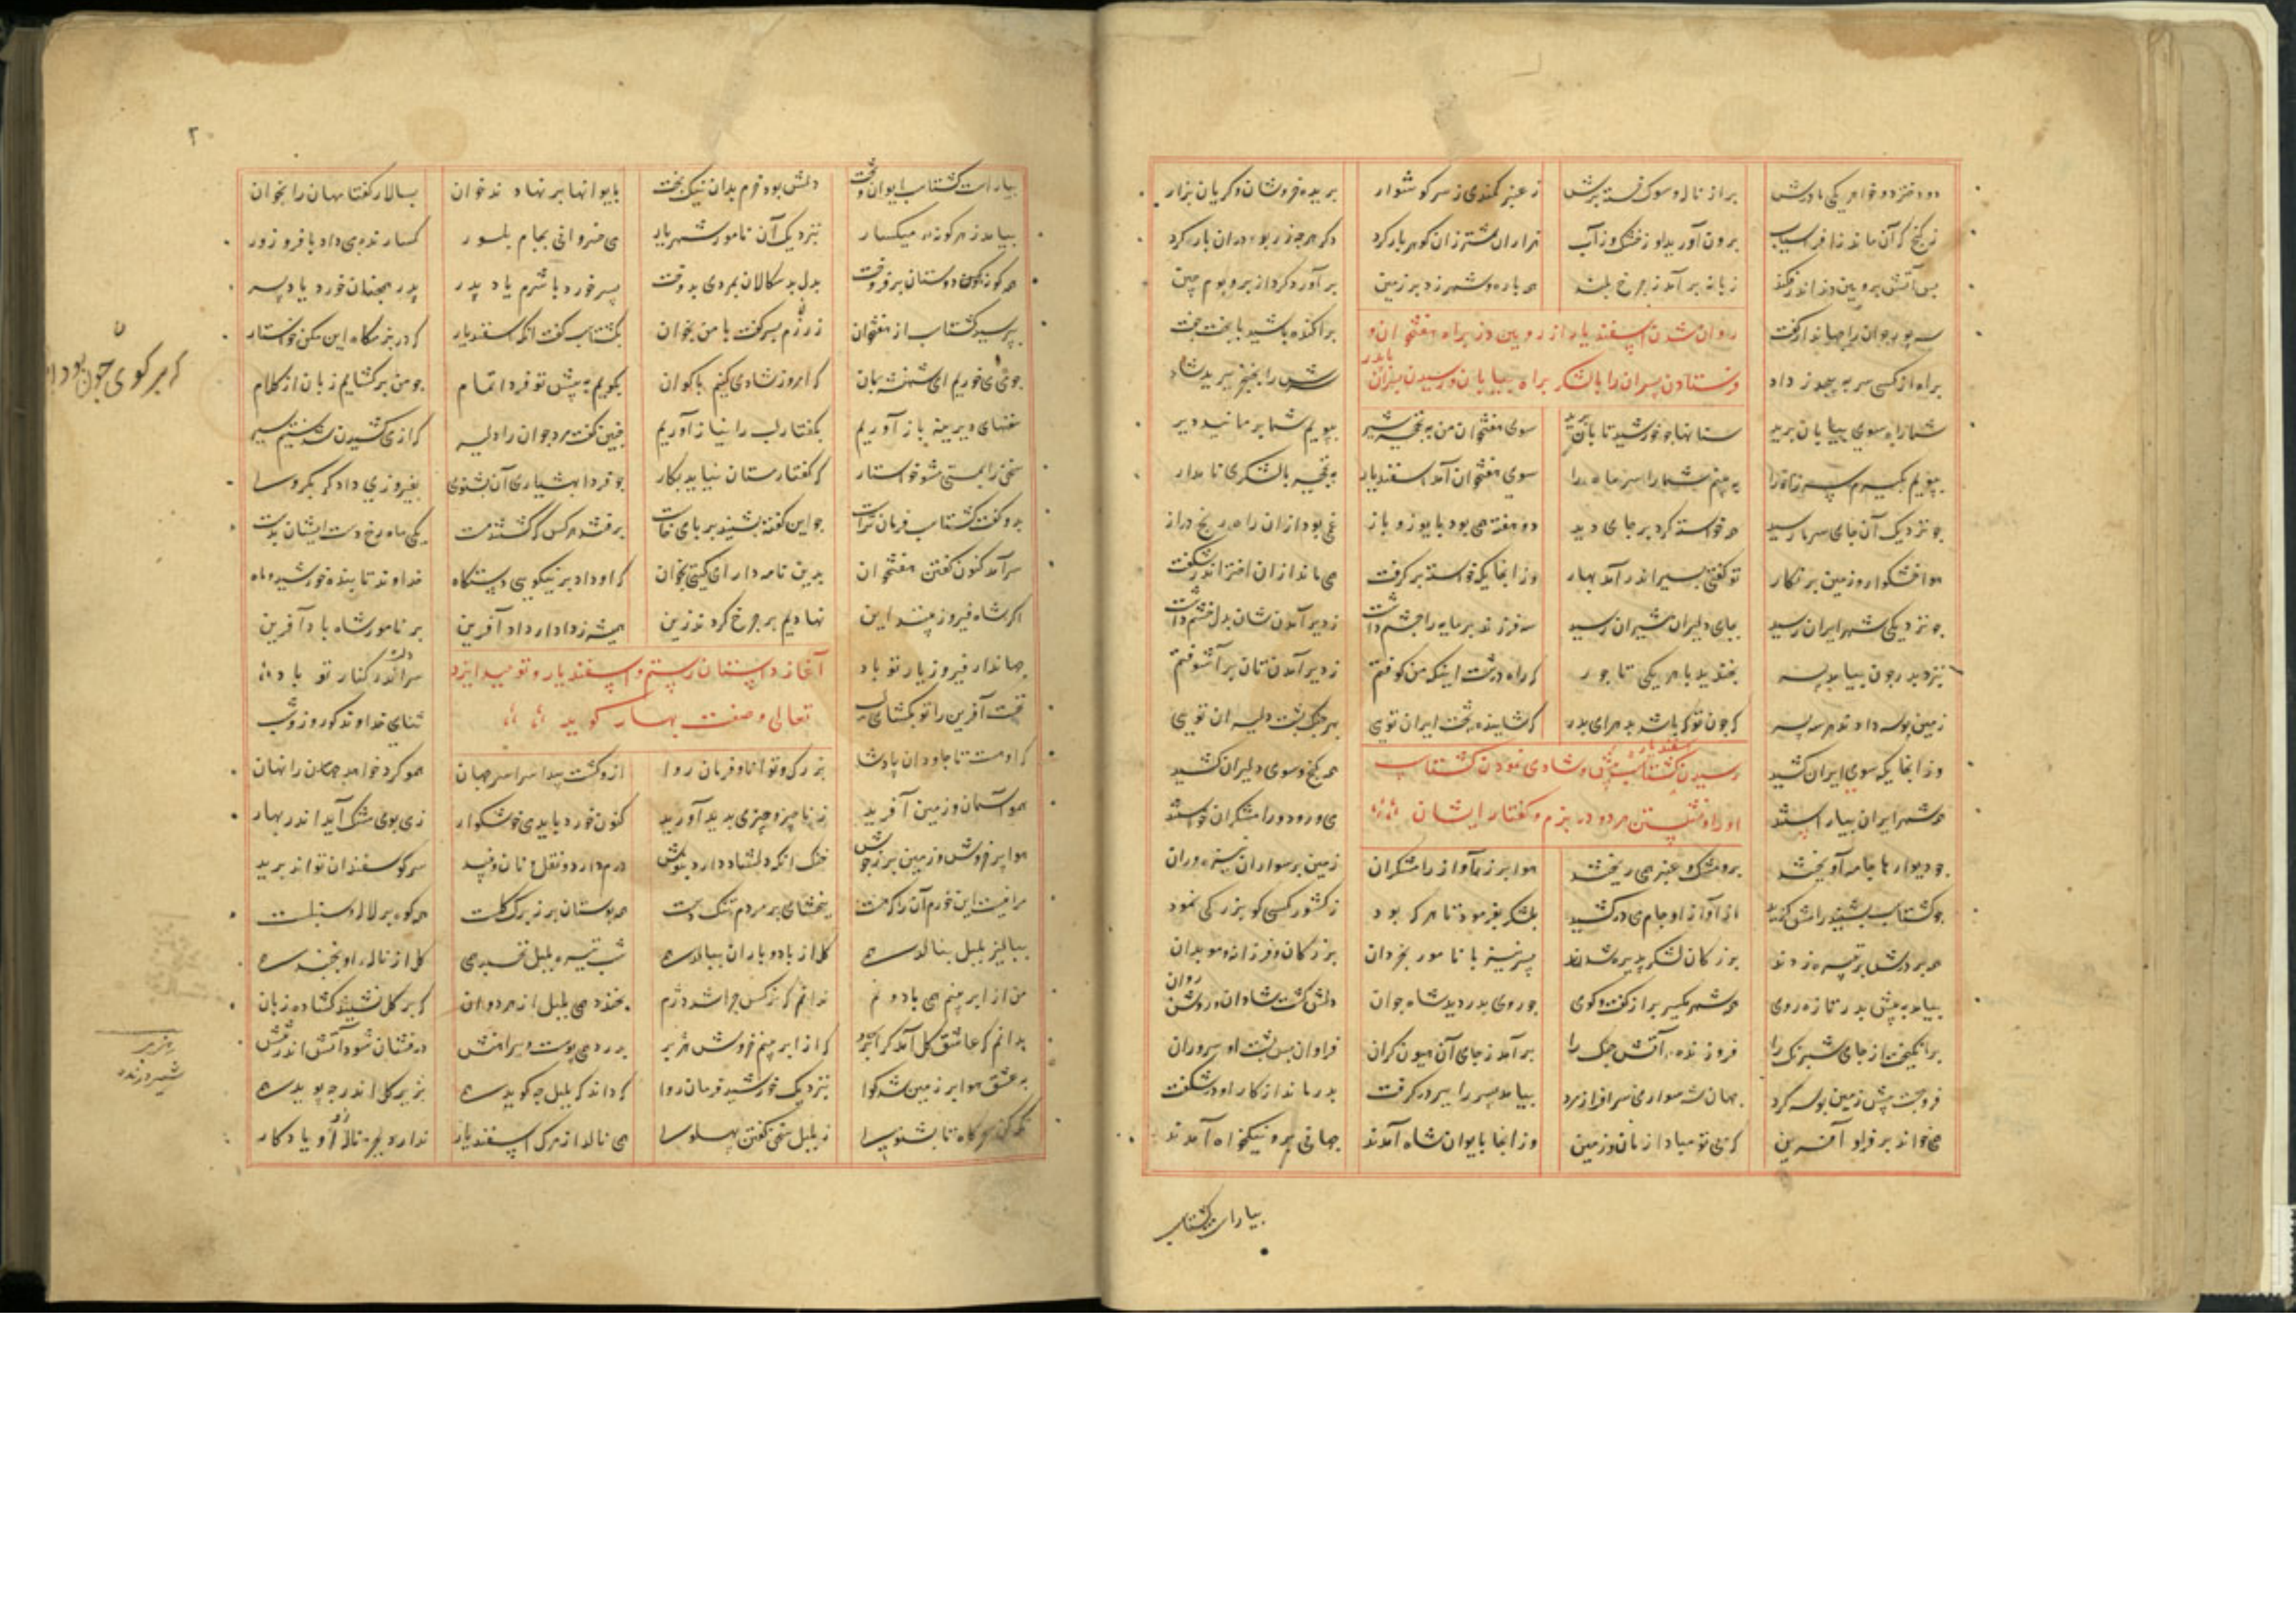 دو دختر دو خواهر یکی مادرش پر از ناله و سوک و خسته برش ز عنبر کمندی ز سر گوشوار بریده خروشان و کریان بزار
ز کنج کران ماند ز افراسیاب برون آورید او ز خشک و ز آب هزاران شتر زان کوهر بار کرد دکر هرچه زر بود دران بار کرد
پس آتش بروین دز اندر فکند زبانه برآمد ز چرخ بلند همه باره و شهر زد بر زمین برآورد کرد از بر و بوم چین
سه پور جوان را جهاندار کفت پراکنده باشید با بخت جفت
روان شدن اسفندیار از روین دز براه هفتخوان و
براه ار کسی سر بپیچد ز داد سرش را بخنجر ببرید شاد
فرستادن پسران را با لشکر براه بیابان و رسیدن بایران
شما راه سوی بیابان برید سنانها چو خورشید تابان برید سوی هفتخوان من به نخجیر شیر بپویم شما بر ممانید دیر
بپویم بکیرم سر راه را ببینم شما را سر ماه را سوی هفتخوان آمد اسفندیار به نخجیر با لشکری نامدار
چو نزدیک آن جای سرما رسید همه خواسته کرد بر جای دید دو هفته همی بود با یوز و باز غمی بود از ان راه رنج دراز
هوا خشکوار و زمین پر نکار تو کفتی بتیر اندر آمد بهار وزانجا یکه خواسته بر کرفت همی ماند از ان اختر اندر شکفت
چو نزدیکی شهر ایران رسید بجای دلیران شیران رسید سه فرزند پرمایه را چشم داشت ز دیر آمدن شان بدل خشم داشت
بنزد پدر چون بیامد پسر بخندید با هر یکی تاجور که راه درشت اینک من کوفتم ز دیر آمدن تان بر آشوفتم
زمین بوسه دادند هر سه پسر که چون تو که باشد بهر ای پدر کشاینده تخت ایران تویی بهر جنک پشت دلیران تویی
وز انجا یکه سوی ایران کشید همه کنج و سوی دلیران کشید
رسیدن اسفندیار پیش کشتاسب و شادی نمودن کشتاسب
همه شهر ایران بیاراستند می و رود و رامشکران خواستند
او را و نشستن هر دو در بزم و کفتار ایشان
چو دیوارها جامه آویختند برو مشک و عنبر همی ریختند هوا بر ز آواز رامشکران زمین بر سواران نیزه وران
چو کشتاسب بشنید رامش کزید از آواز او جام می در کشید بلشکر بفرمود تا هر که بود ز کشور کسی کو بزرکی نمود
همه بر درش برتیره زدند بزرکان لشکر پذیره شدند پسر نیز با نامور بخردان بزرکان و فرزانه و موبدان
بیامد به پیش پدر تازه روی همه شهر یکسر پر از کفت و کوی چو روی پدر دید شاه جوان دلش کشت شادان و روشن روان
برانکیخت از جای شبرنک را فروزنده آتش جنک را بر آمد ز جای آن هیون کران فراوان پس پشت او سروران
فرو جست پیش زمین بوسه کرد جهان شهسواری سرافراز مرد بیامد پسر را ببر در کرفت پدر ماند از کار او در شکفت
همی خواند بر فر او آفرین که بی تو مبادا زمان و زمین وز انجا بایوان شاه آمدند جهانی برو نیکخواه آمدند
بیاراست کشتاسب
بیاراست کشتاسب ایوان و تخت دلش بود خرم بدان نیک بخت بایوانها بر نهادند خوان بسالار کفتا مهان را بخوان
بیامد ز هر کوزه میکسار بنزدیک آن نامور شهریار می خسروانی بجام بلور کسارنده می داد با فر و زور
همه کونه دوستان برفروخت بدل بدسکالان بمردی بدوخت پسر خورد با شرم یاد پدر پدر همچنان خورد یاد پسر
بپرسید کشتاسب از هفتخوان ز رزم پسر کفت با من بخوان بکشتاسب کفت آنکه اسفندیار که در بزمکاه این مکن خواستار
چو می خوریم ای شهنشه بمان که امروز شادی کنیم با کوان بکویم به پیش تو فردا تمام چو من بر کشایم زبان از کلام
که بر کوی چون بود داستان
سخنهای دیرینه باز آوریم بکفتار لب را نیاز آوریم چنین کفت مرد جوان را دلیر که از می کشیدن شدستیم سیر
سخن را بمستی مشو خواستار که کفتار مستان نیاید بکار چو فردا بهشیاری آن بشنوی بفیروزی دادکر بکروی
برو کفت کشتاسب فرمان تراست چو این کفته بشنید بر پای خاست برفتند هر کس که کشتند مست یکی ماه رخ دست ایشان بدست
سرآمد کنون کفتن هفتخوان بدین نامه دارای کیتی بخوان که او داد بر نیکویی دستکاه خداوند تابنده خورشید و ماه
اکر شاه فیروز پسندد این نهادیم بر چرخ کردنده زین همیشه ز دادار داد آفرین بر نامور شاه باد آفرین
جهاندار فیروز یار تو باد سر اندر کنار تو باد
آغاز داستان رستم و اسفندیار و توحید ایزد
نخست آفرین را تو بکشای لب ثنای خداوند کو روز و شب
تعالی و صفت بهار کوید
که اوست تا جاودان پادشا بزرک و توانا و فرمان روا ازو کشت پیدا سراسر جهان همو کرد خواهد جهان را نهان
همو آسمان و زمین آفرید ز ناچیز و چیزی پدید آورید کنون خورد باید می خوشکوار که می بوی مشک آید اندر بهار
هوا پر خروش و زمین پر ز جوش خنک انکه دلشاد دارد بنوش درم دارد و نقل و نان و نبید سر کوسفندان تواند برید
مرا نیست این خرم آن را که هست ببخشای بر مردم تنک دست همه بوستان بر ز برک کلست همه کوه پر لاله و سنبلست
ببالیز بلبل بنالد همی کل از باد و باران ببالد همی شب تیره بلبل نخسبد همی کل از ناله او بخندد همی
من از ابر بینم همی باد و نم ندانم که نرکس چرا شد دژم بخندد همی بلبل از هر دوان که بر کل نشیند کشاده زبان
بدانم که عاشق کل آمد کر ابر که از ابر بینم خروش هژبر بدرد همی پوست پیراهنش درفشان شود آتش اندر تنش
به عشق هوا بر زمین شد کوا بنزدیک خورشید فرمان روا که داند که بلبل چه کوید همی بزیر کل اندر چه پوید همی
نکه کن سحرکاه تا بشنوی ز بلبل سخن کفتن پهلوی همی نالد از مرک اسفندیار ندارد بجز ناله زو یادکار
هزبر
شیر درنده